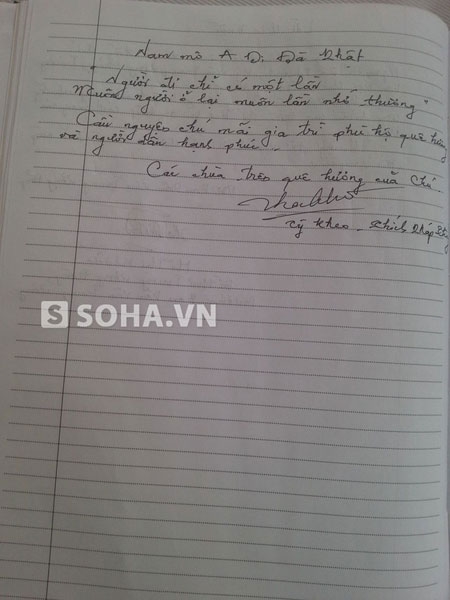 Nam mô A Di Đà Phật
"Người đi chỉ có một lần
Muôn người ở lại muôn lần nhớ thương"
Cầu nguyện chú mãi gia trì phù hộ quê hương
và người dân hạnh phúc.
Các chùa trên quê hương của Chú.
Tỳ kheo Thích Pháp
S SOHA.VN